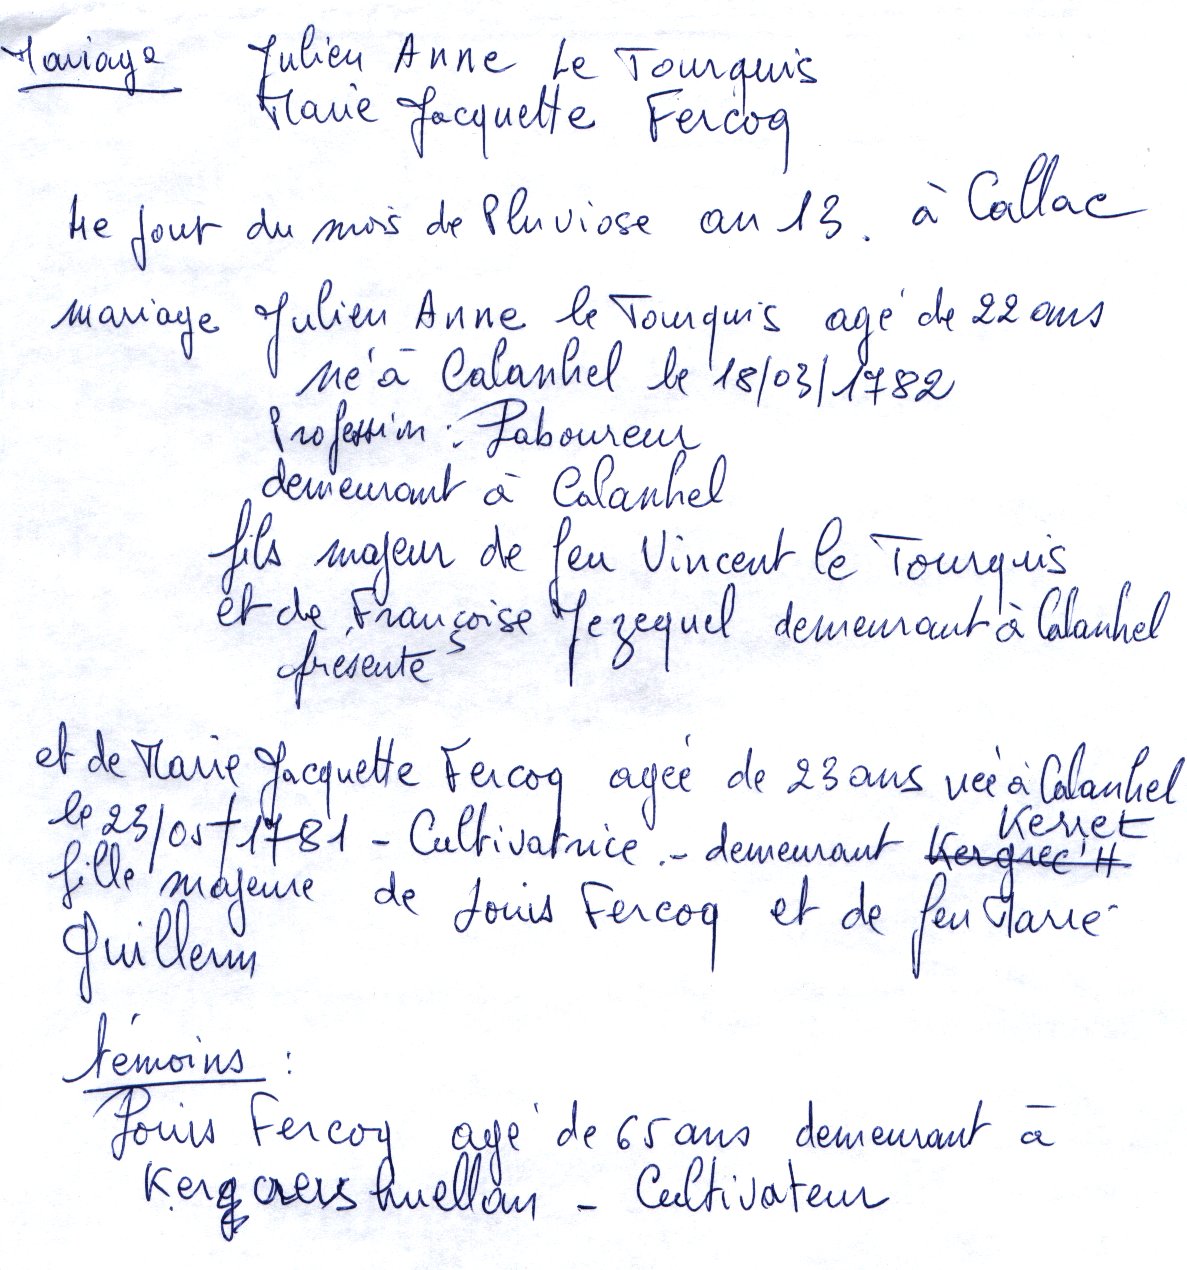 Mariage Julien Anne Le Tourquis
Marie Jacquette Fercoq
4e jour du mois de Pluviose an 13. à Callac
mariage Julien Anne le Tourquis agé de 22 ans
né à Calanhel le 18/03/1782
Profession : Laboureur
demeurant à Calanhel
fils majeur de feu Vincent le Tourquis
et de Françoise Jezequel demeurant à Calanhel
présente
et de Marie Jacquette Fercoq agée de 23 ans née à Calanhel
le 23/05/1781 - Cultivatrice .- demeurant Kerret
fille majeure de Louis Fercoq et de feu Marie
Guillerm
témoins :
Louis Fercoq agé de 65 ans demeurant à
- Cultivateur